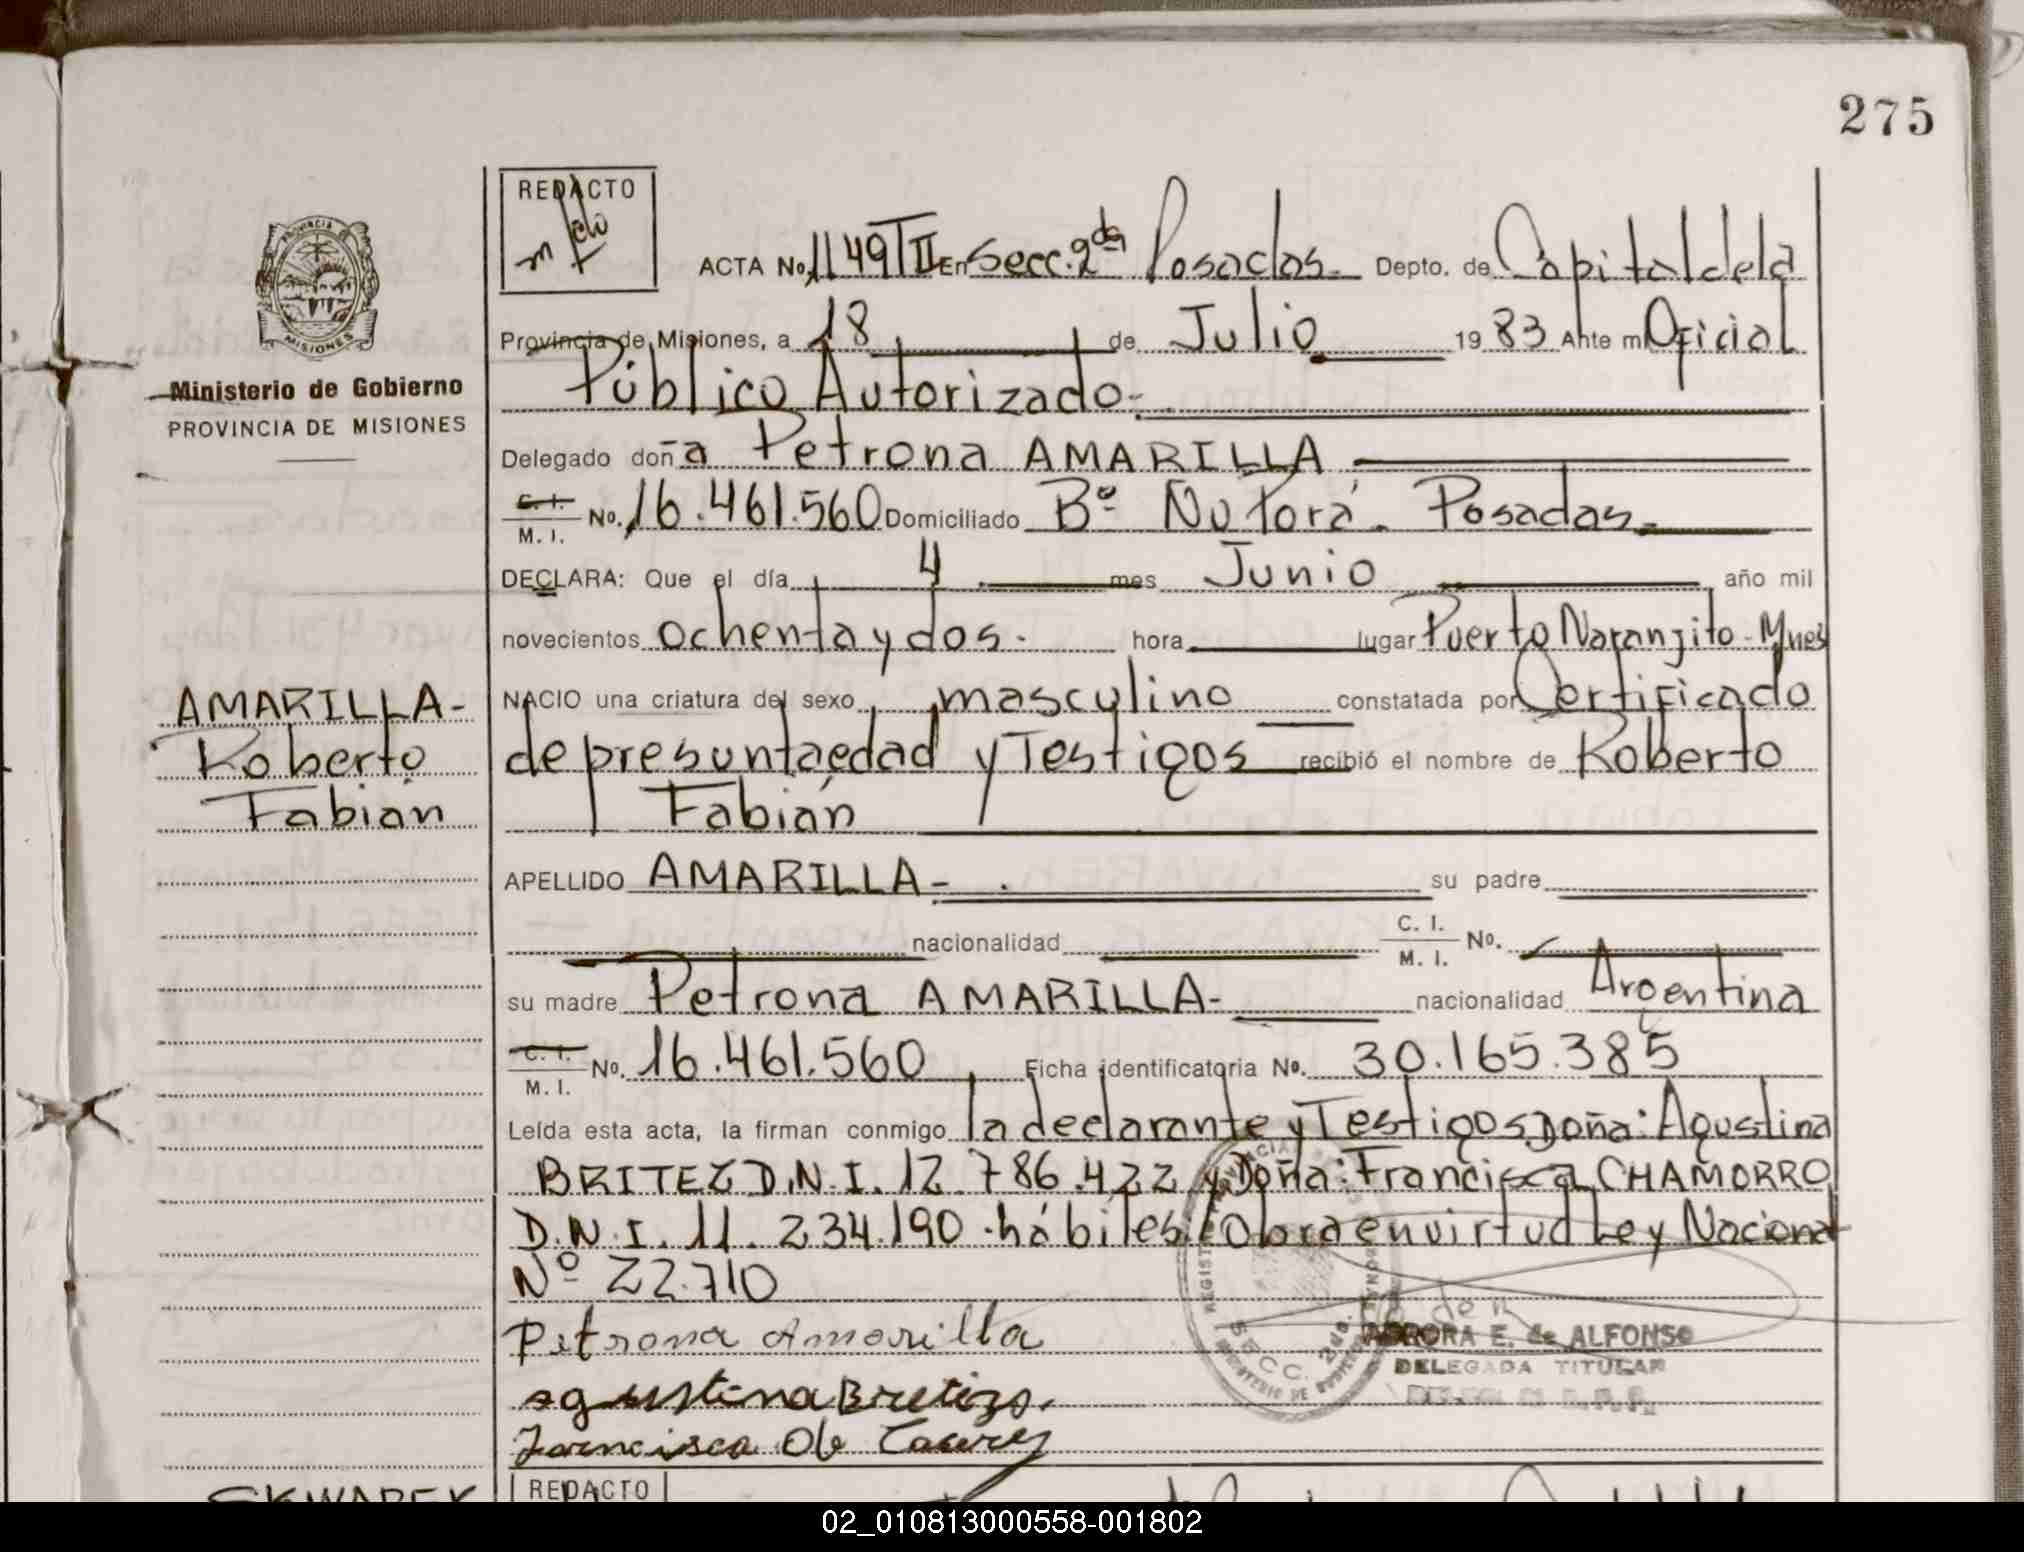 275
PROVINCIA DE
MISIONES
Ministerio de Gobierno
PROVINCIA DE MISIONES
AMARILLA-
Roberto
Fabián
REDACTO
ACTA No. 1149 T II En Secc. 2da Posadas. Depto. de Capital de la
Provincia de Misiones, a 18 de Julio 1983 Ante mi Oficial
Público Autorizado.
Delegado doña Petrona AMARILLA
C. I. M. I. No. 16.461.560 Domiciliado Bº Ñu Porá. Posadas.
DECLARA: Que el día 4 mes Junio año mil
novecientos ochenta y dos. hora lugar Puerto Naranjito-Mnes
NACIO una criatura del sexo masculino constatada por Certificado
de presunta edad y Testigos recibió el nombre de Roberto
Fabián
APELLIDO AMARILLA-. su padre
nacionalidad C. I. M. I. No.
su madre Petrona AMARILLA- nacionalidad Argentina
C. I. M. I. No. 16.461.560 Ficha identificatoria No. 30.165.385
Leída esta acta, la firman conmigo la declarante y Testigos Doña: Agustina
BRITEZ D.N.I. 12.786.422 y Doña: Francisca CHAMORRO
D.N.I. 11.234.190 hábiles/Obra en virtud Ley Nacional
Nº 22.710
Petrona Amarilla
agustina Britizo.
Francisca
SECC. 2da.
AURORA E. de ALFONSO
DELEGADA TITULAR
SKWAREK
REDACTO
02_010813000558-001802